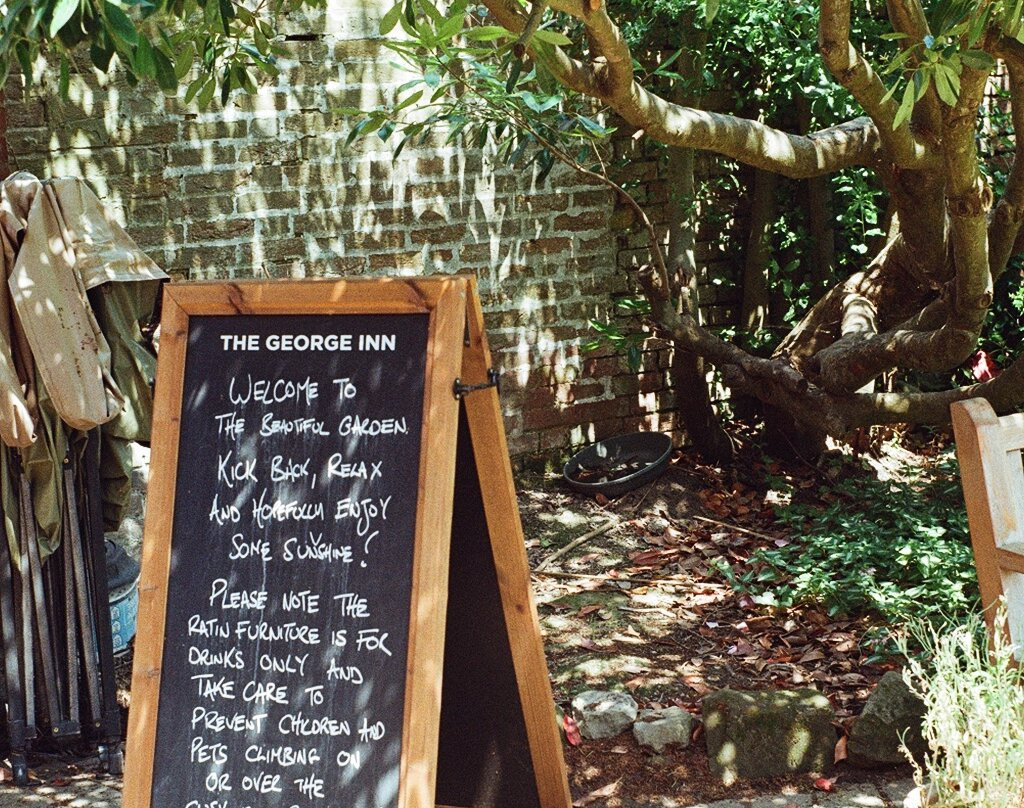 THE GEORGE INN
WELCOME TO
THE BEAUTIFUL GARDEN.
KICK BACK, RELAX
AND HOPEFULLY ENJOY
SOME SUNSHINE!
PLEASE NOTE THE
RATIN FURNITURE IS FOR
DRINKS ONLY AND
TAKE CARE TO
PREVENT CHILDREN AND
PETS CLIMBING ON
OR OVER THE